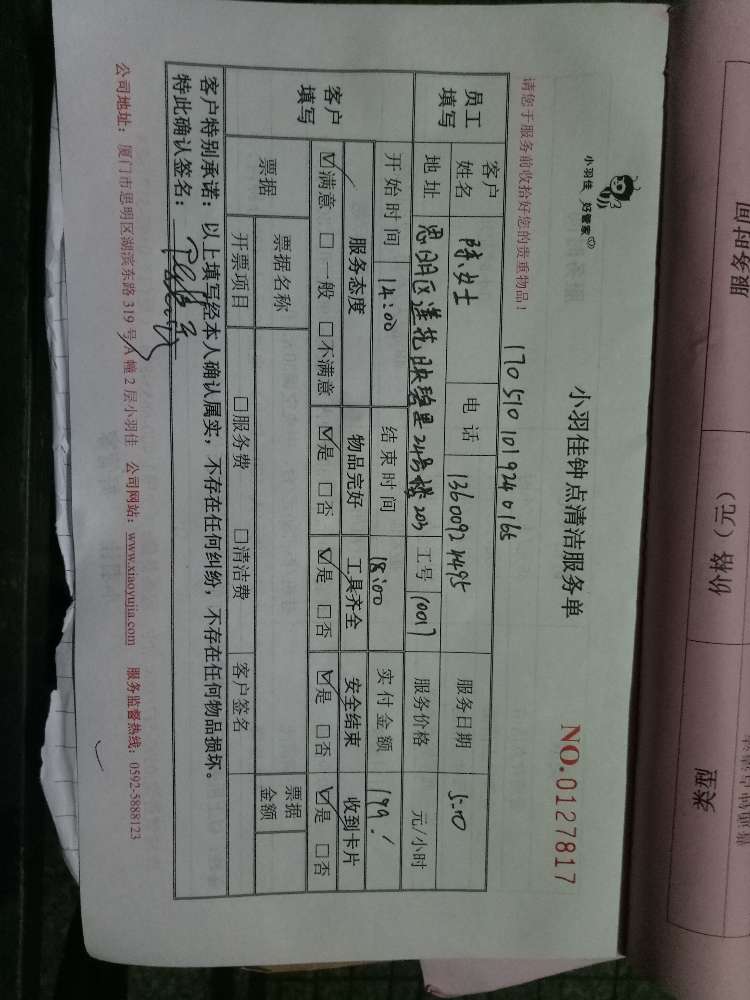 小羽佳 好管家
小羽佳钟点清洁服务单
NO.0127817
请您于服务前收拾好您的贵重物品！
1705101019240165
员工填写
客户姓名 陈女士 电话 13600924495 服务日期 5.10
地址 思明区莲花 里24号楼203 工号 10017 服务价格 元/小时
开始时间 14:00 结束时间 18:00 实付金额 199
客户填写
服务态度 物品完好 工具齐全 安全结束 收到卡片
☑满意 □一般 □不满意 ☑是 □否 ☑是 □否 ☑是 □否 ☑是 □否
票据 票据名称 票据金额
开票项目 □服务费 □清洁费 客户签名
客户特别承诺：以上填写经本人确认属实，不存在任何纠纷，不存在任何物品损坏。
特此确认签名：
公司地址：厦门市思明区湖滨东路319号A幢2层小羽佳 公司网站：www.xiaoyujia.com 服务监督热线：0592-5888123
服务时间
价格（元）
类型